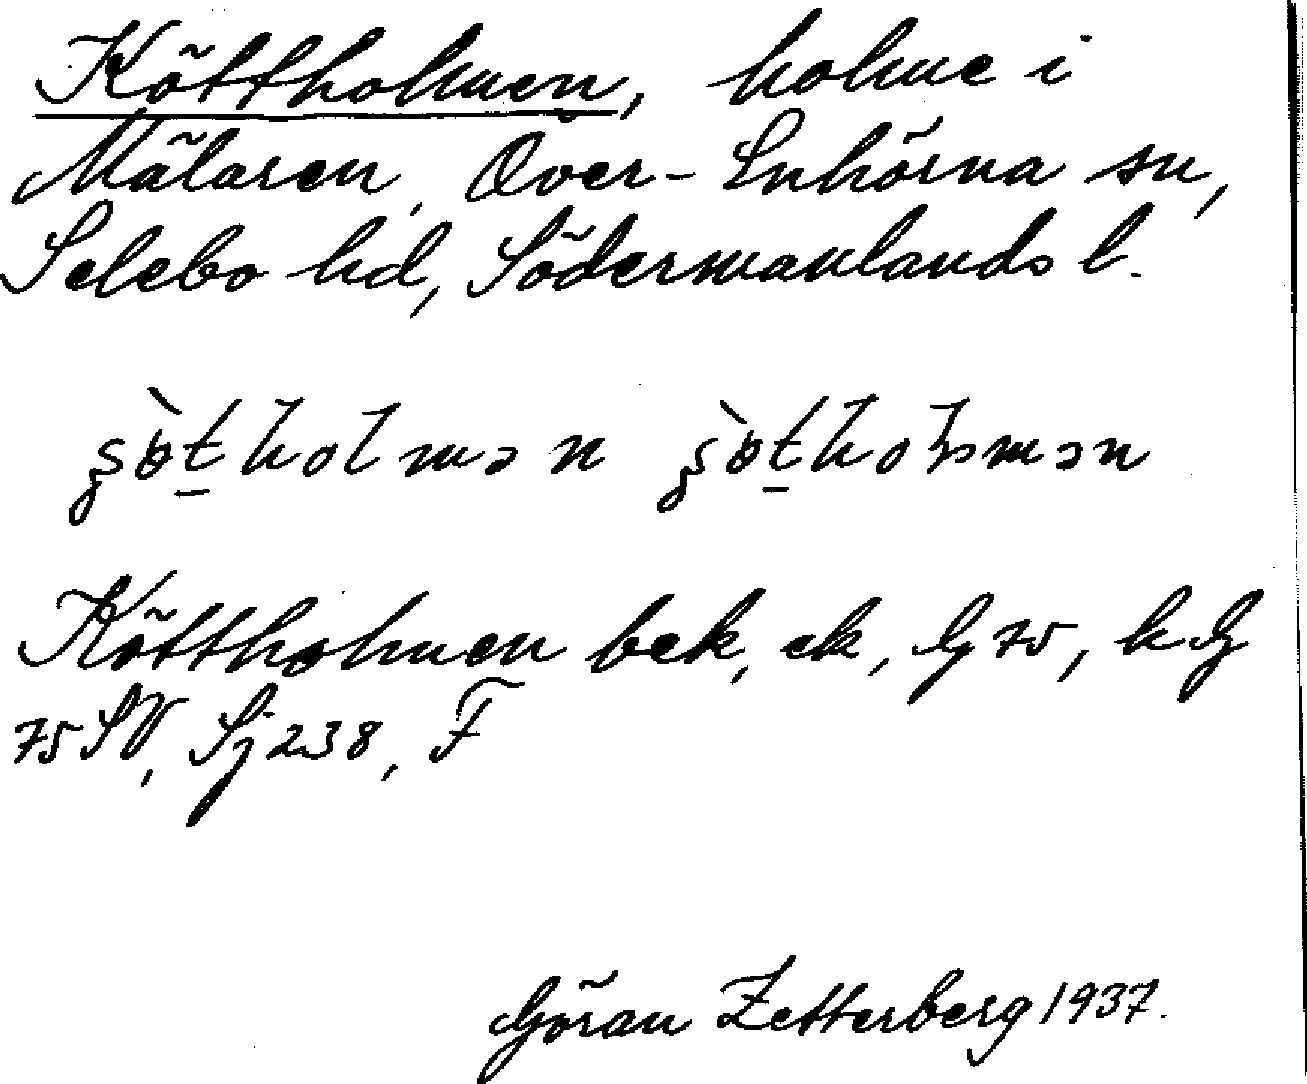 Köttholmen, holme i
Mälaren, Över-Enhörna sn,
Selebo hd, Södermanlands l.
Köttholmen bek, ek, G 75, hG
75 SV, Sj 238, F
Göran Zetterberg 1937.